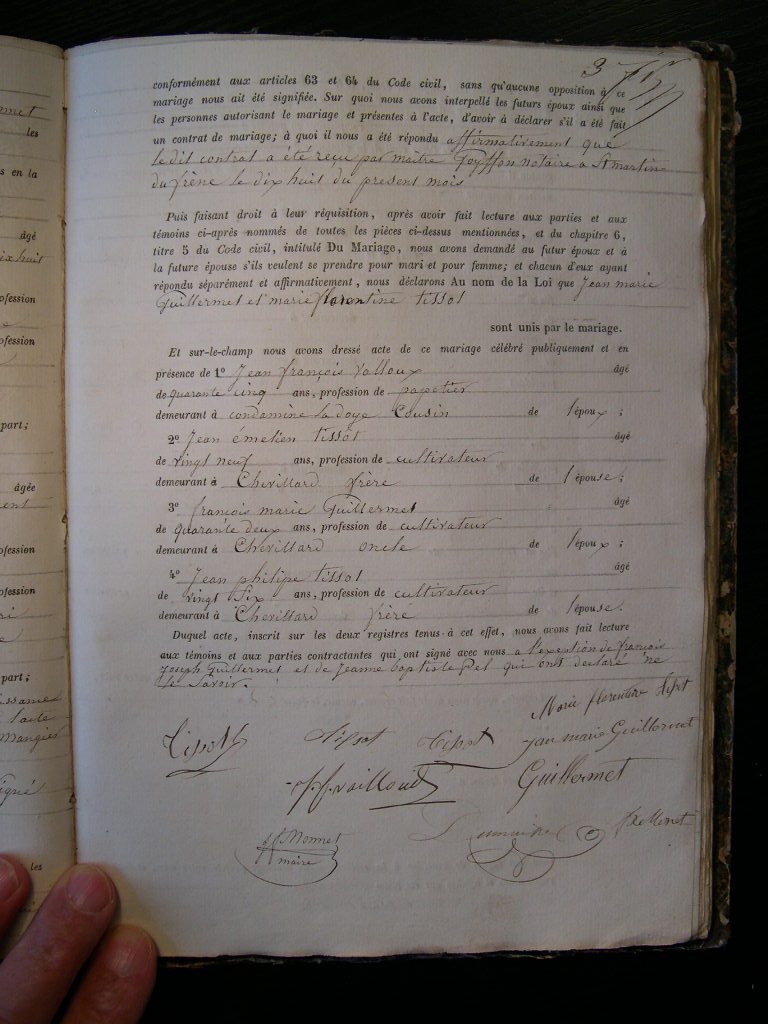 3
conformément aux articles 63 et 64 du Code civil, sans qu'aucune opposition à ce
mariage nous ait été signifiée. Sur quoi nous avons interpellé les futurs époux ainsi que
les personnes autorisant le mariage et présentes à l'acte, d'avoir à déclarer s'il a été fait
un contrat de mariage; à quoi il nous a été répondu affirmativement que
le dit contrat a été reçu par maître Goyffon notaire a St martin
du frêne le dix huit du present mois
Puis faisant droit à leur réquisition, après avoir fait lecture aux parties et aux
témoins ci-après nommés de toutes les pièces ci-dessus mentionnées, et du chapitre 6,
titre 5 du Code civil, intitulé Du Mariage, nous avons demandé au futur époux et à
la future épouse s'ils veulent se prendre pour mari et pour femme; et chacun d'eux ayant
répondu séparément et affirmativement, nous déclarons Au nom de la Loi que Jean marie
Guillermet et marie florentine tissot
sont unis par le mariage.
Et sur-le-champ nous avons dressé acte de ce mariage célébré publiquement et en
présence de 1º Jean françois Valloux âgé
de quarante cinq ans, profession de papetier
demeurant à condamine la doye Cousin de l'époux ;
2º Jean émelien tissot âgé
de vingt neuf ans, profession de cultivateur
demeurant à Chevillard frère de l'épouse ;
3º françois marie Guillermet âgé
de quarante deux ans, profession de cultivateur
demeurant à Chevillard oncle de l'époux ;
4º Jean philipe tissot âgé
de vingt six ans, profession de cultivateur
demeurant à Chevillard frère de l'épouse.
Duquel acte, inscrit sur les deux registres tenus à cet effet, nous avons fait lecture
aux témoins et aux parties contractantes qui ont signé avec nous a l'exeption de françois
Joseph Guillermet et de Jeanne baptiste Pel qui ont declaré ne
le Savoir.
Marie florentine tissot
Tissot tissot tissot jean marie Guillermet
Guillermet
Monnet
maire